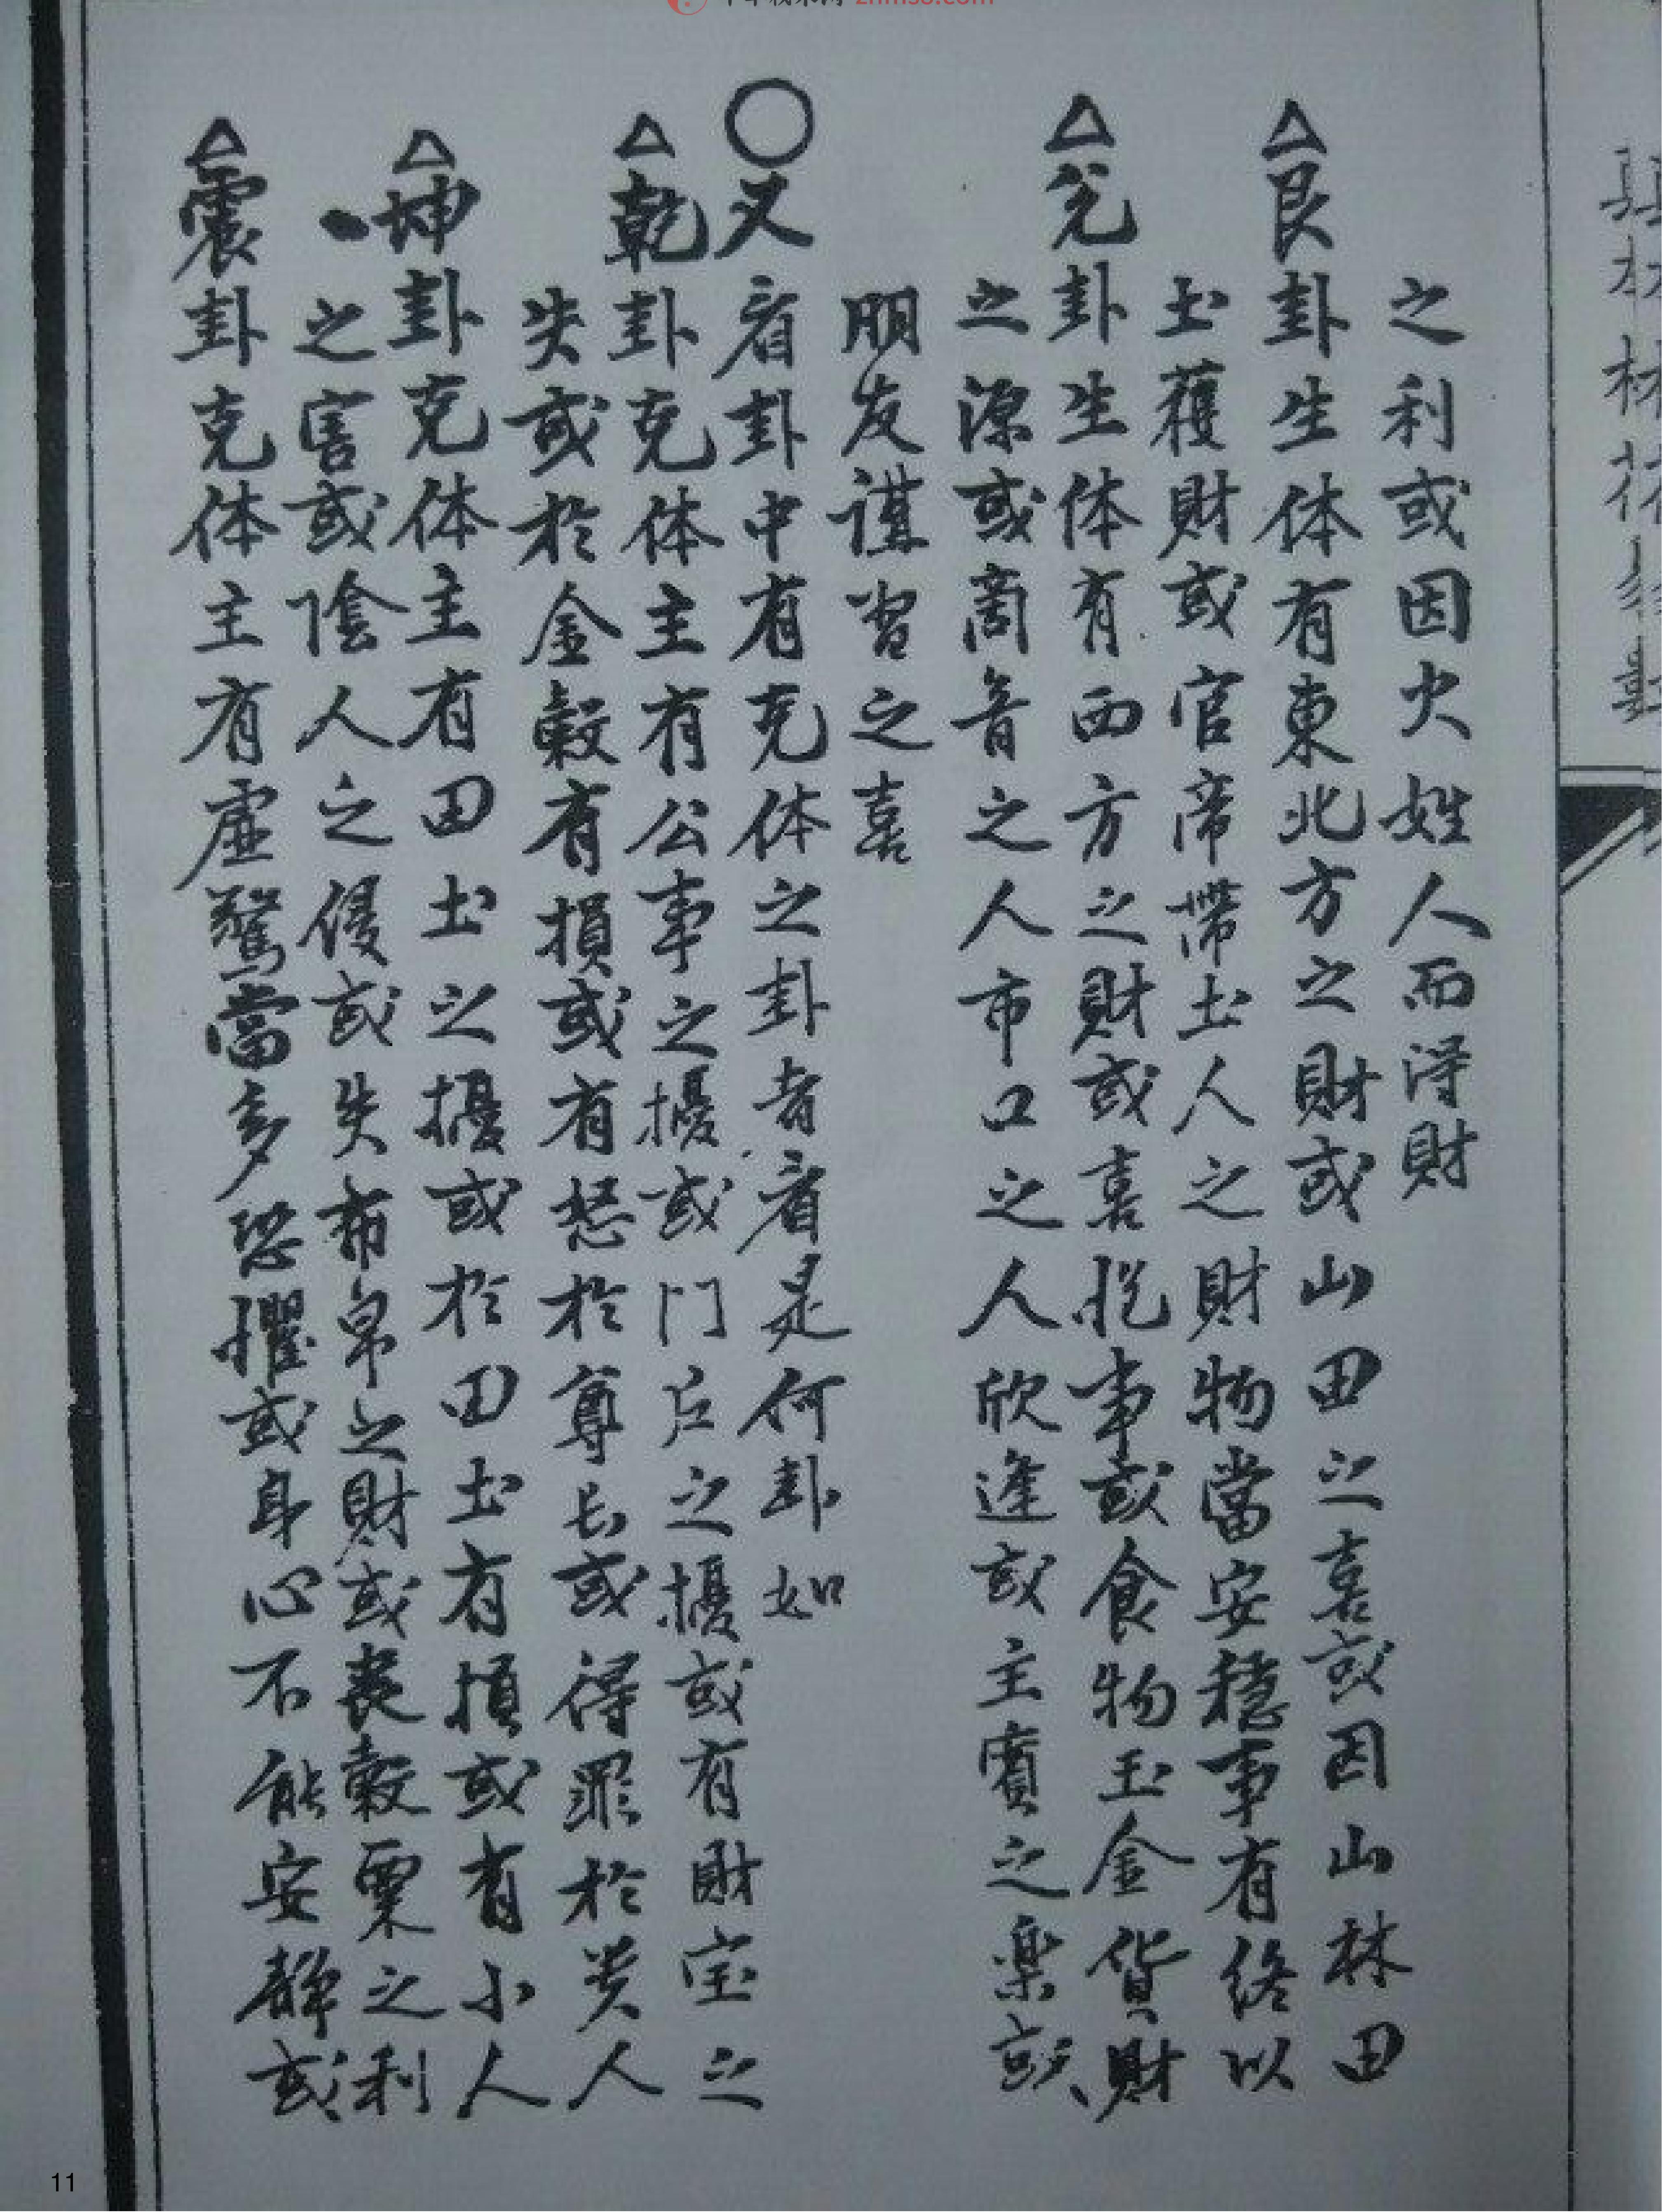 之利或因火姓人而得財
△艮卦生体有東北方之財或山田之喜或因山林田
土獲財或官帝帶土人之財物當安穩事有终以
△兌卦生体有西方之財或喜挩事或食物玉金貨財
之源或商音之人市口之人欣逢或主賓之楽或
朋友谋習之喜
○又看卦中有克体之卦者看是何卦如
△乾卦克体主有公事之擾或门户之擾或有財宝之
失或於金榖有損或有怒於尊长或得罪於贵人
△坤卦克体主有田土之擾或於田土有損或有小人
之害或陰人之侵或失布帛之財或丧榖粟之利
△震卦克体主有虚驚當多恐懼或身心不能安静或
11